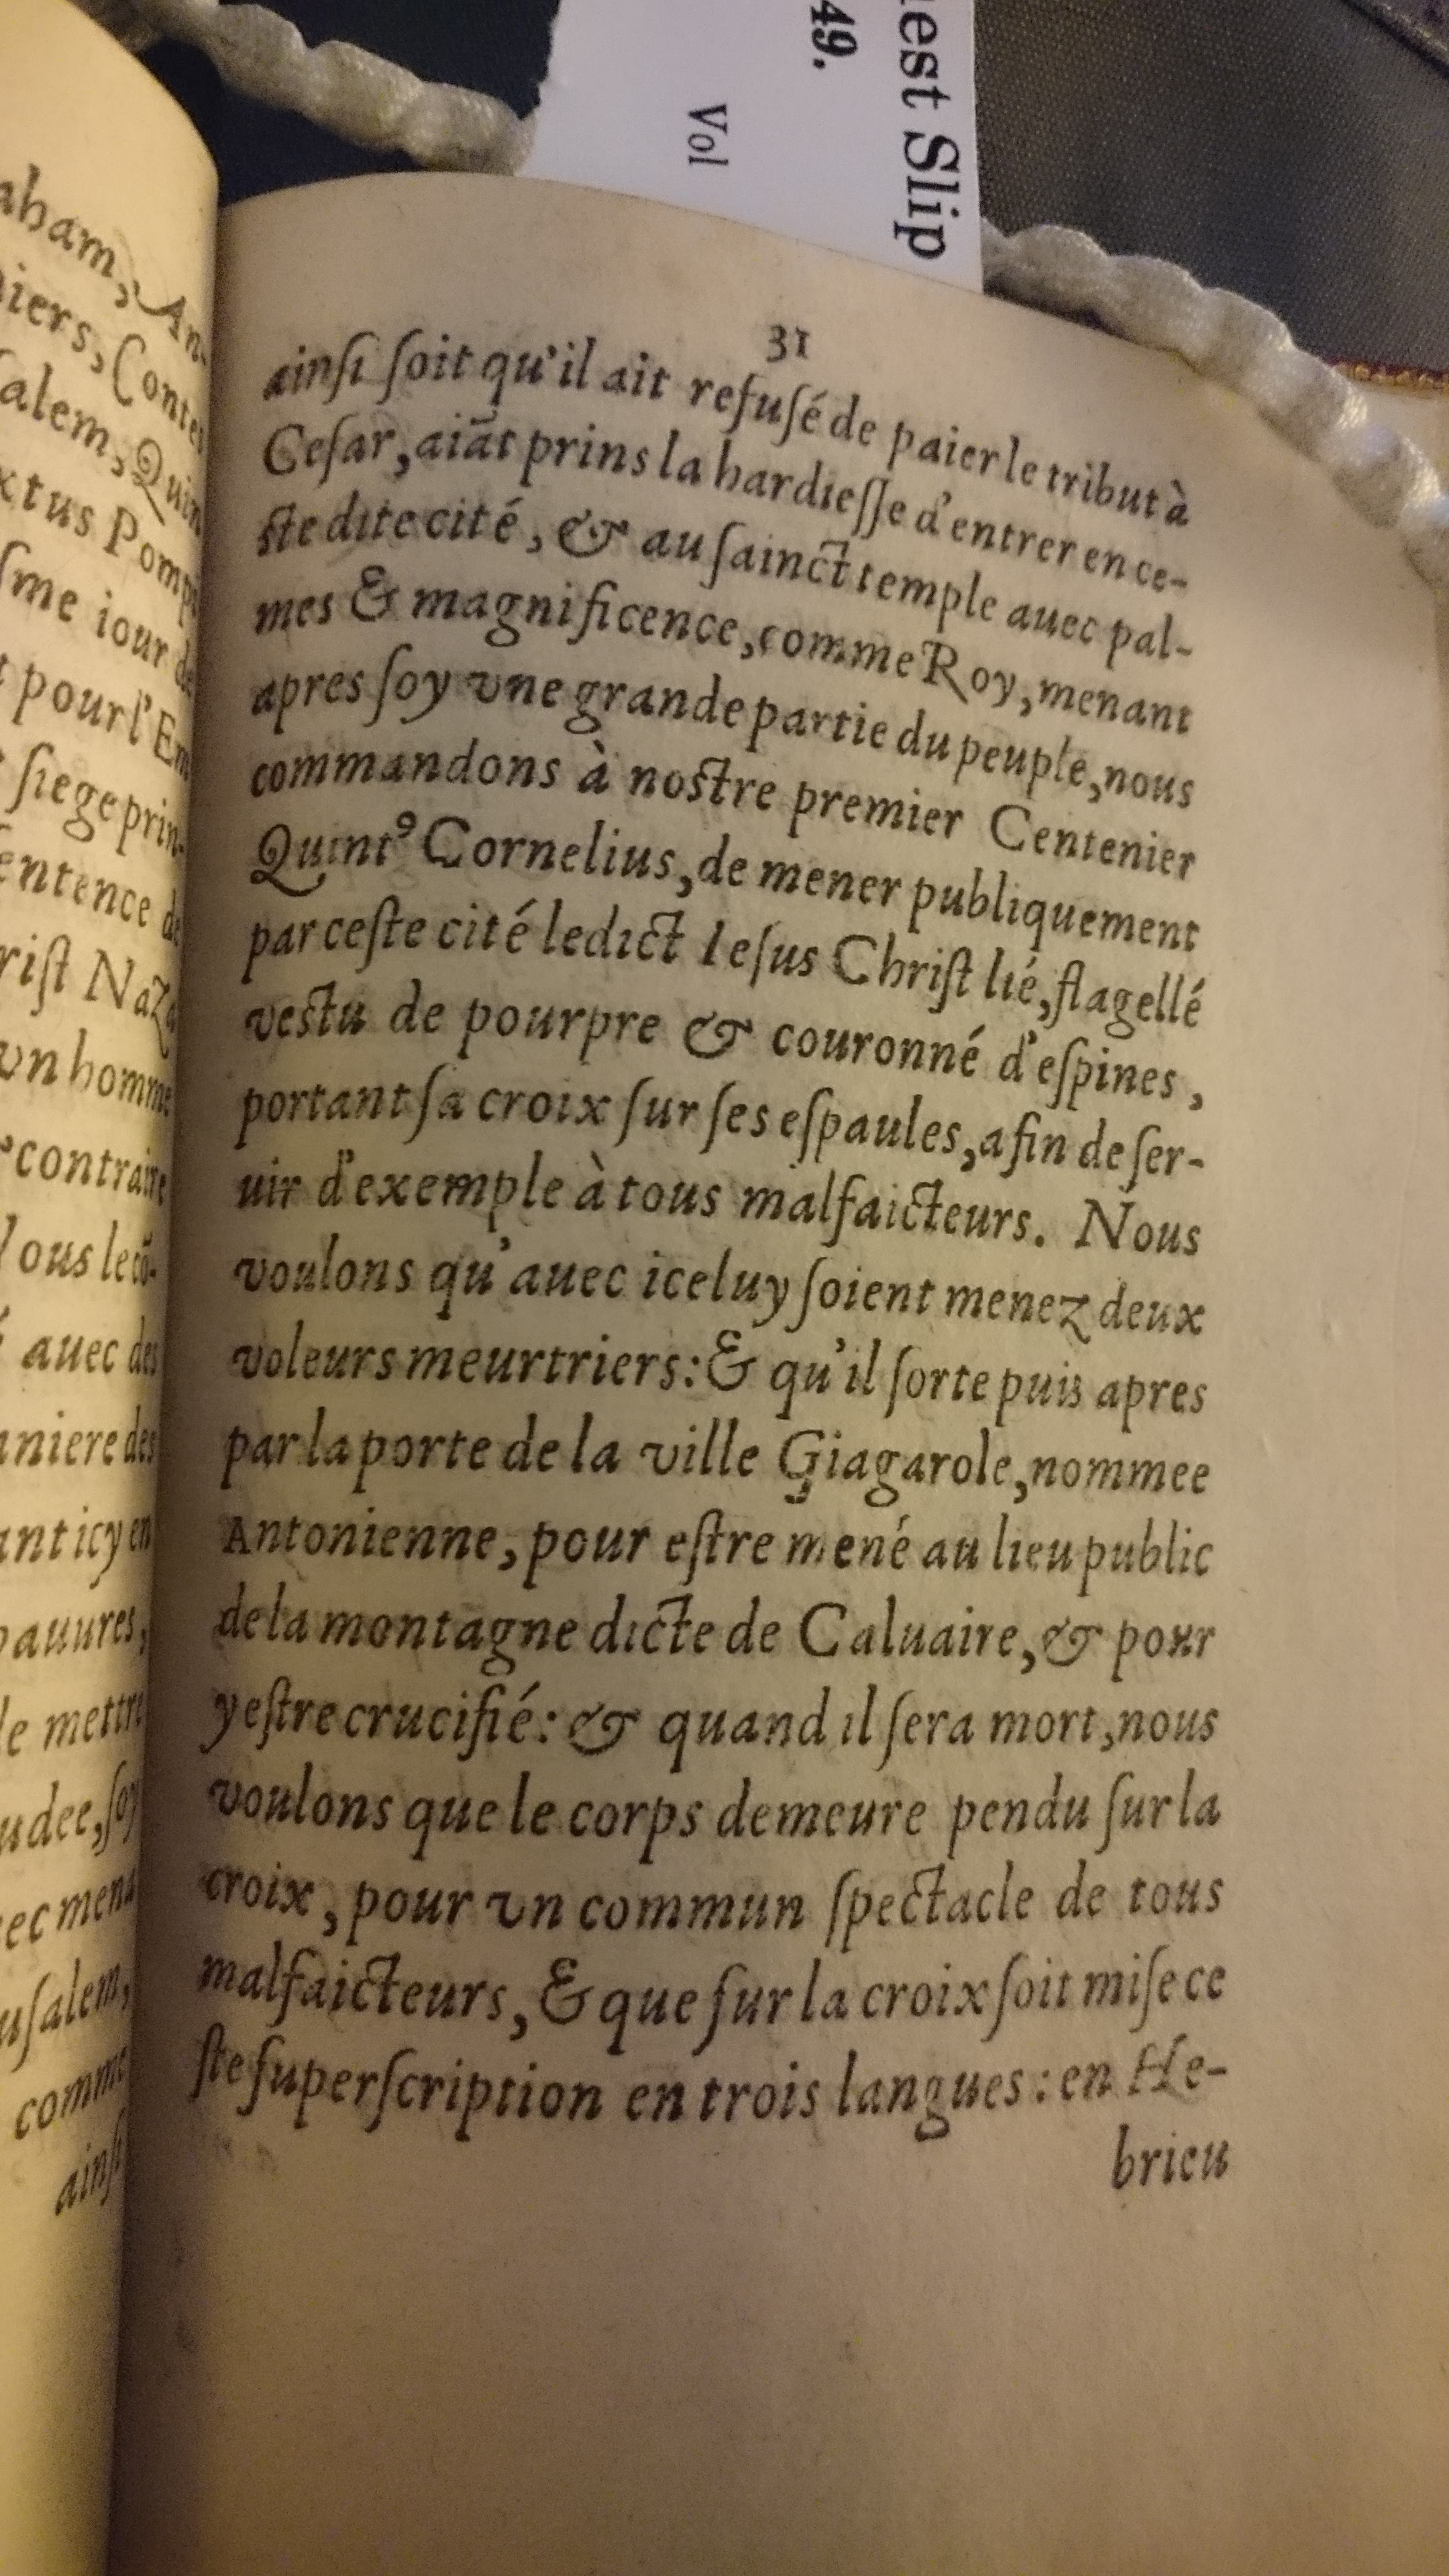 aham, An-
iers, Contes
ſalem, Quin
xtus Pomp
ſme iour de
pour l'Em
ſiege prin-
entence de
riſt Naza
vn homme
contraire
ous le cō-
auec des
aniere des
ant icy en
pauures,
le mettre
udee, ſoy
ec mena
uſalem,
comme
ainſi
49.
Vol
est Slip
31
ainſi ſoit qu'il ait refuſé de paier le tribut à
Ceſar, aiāt prins la hardieſſe d'entrer en ce-
ſte dite cité, & au ſainct temple auec pal-
mes & magnificence, comme Roy, menant
apres ſoy vne grande partie du peuple, nous
commandons à noſtre premier Centenier
Quintꝰ Cornelius, de mener publiquement
par ceſte cité ledict Ieſus Chriſt lié, flagellé
veſtu de pourpre & couronné d'eſpines,
portant ſa croix ſur ſes eſpaules, afin de ſer-
uir d'exemple à tous malfaicteurs. Nous
voulons qu'auec iceluy ſoient menez deux
voleurs meurtriers: & qu'il ſorte puis apres
par la porte de la ville Giagarole, nommee
Antonienne, pour eſtre mené au lieu public
de la montagne dicte de Caluaire, & pour
y eſtre crucifié: & quand il ſera mort, nous
voulons que le corps demeure pendu ſur la
croix, pour vn commun ſpectacle de tous
malfaicteurs, & que ſur la croix ſoit miſe ce
ſte ſuperſcription en trois langues: en He-
brieu